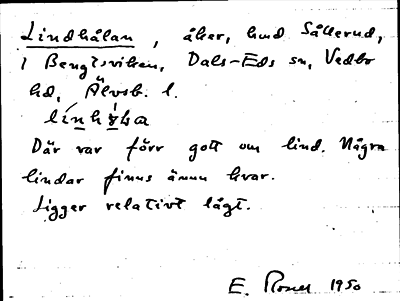 Lindhålan, åker, hmd Sållerud,
i Bengtsviken, Dals-Eds sn, Vedbo
hd, Älvsb. l.
Där var förr gott om lind. Några
lindar finns ännu kvar.
Ligger relativt lågt.
E. Rosell 1950